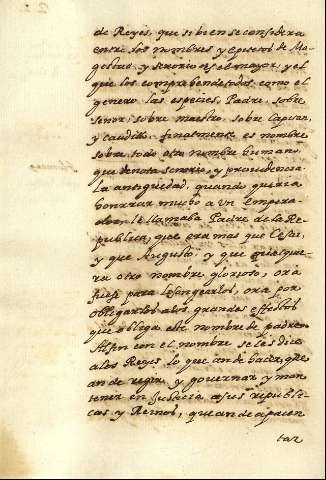 de Reyes, que si bien se considera
entre los nombres y epitetos de Ma-
gestad y señorio es el mayor, y el
que los comprehende todos, como el
genero las especies, Padre, sobre
señor, sobre maestro, sobre Capitan,
y caudillo. finalmente es nombre
sobre todo otro nombre humano
que denota señorio, y providencia
la antiguedad, quando queria
honrrar mucho a un Empera-
dor le llamaba Padre de la Re-
publica, que era mas que Cesar,
y que Augusto, y que qualquie-
ra otro nombre glorioso, ora
fuese para lisongearlos, ora por
obligarlos a los grandes effectos
que obliga este nombre de padre.
Assi con el nombre se les dice
a los Reyes lo que an de hacer, que
an de regir, y governar y man-
tener en Justicia a sus republi-
cas y Reinos, que an de apacen
tar